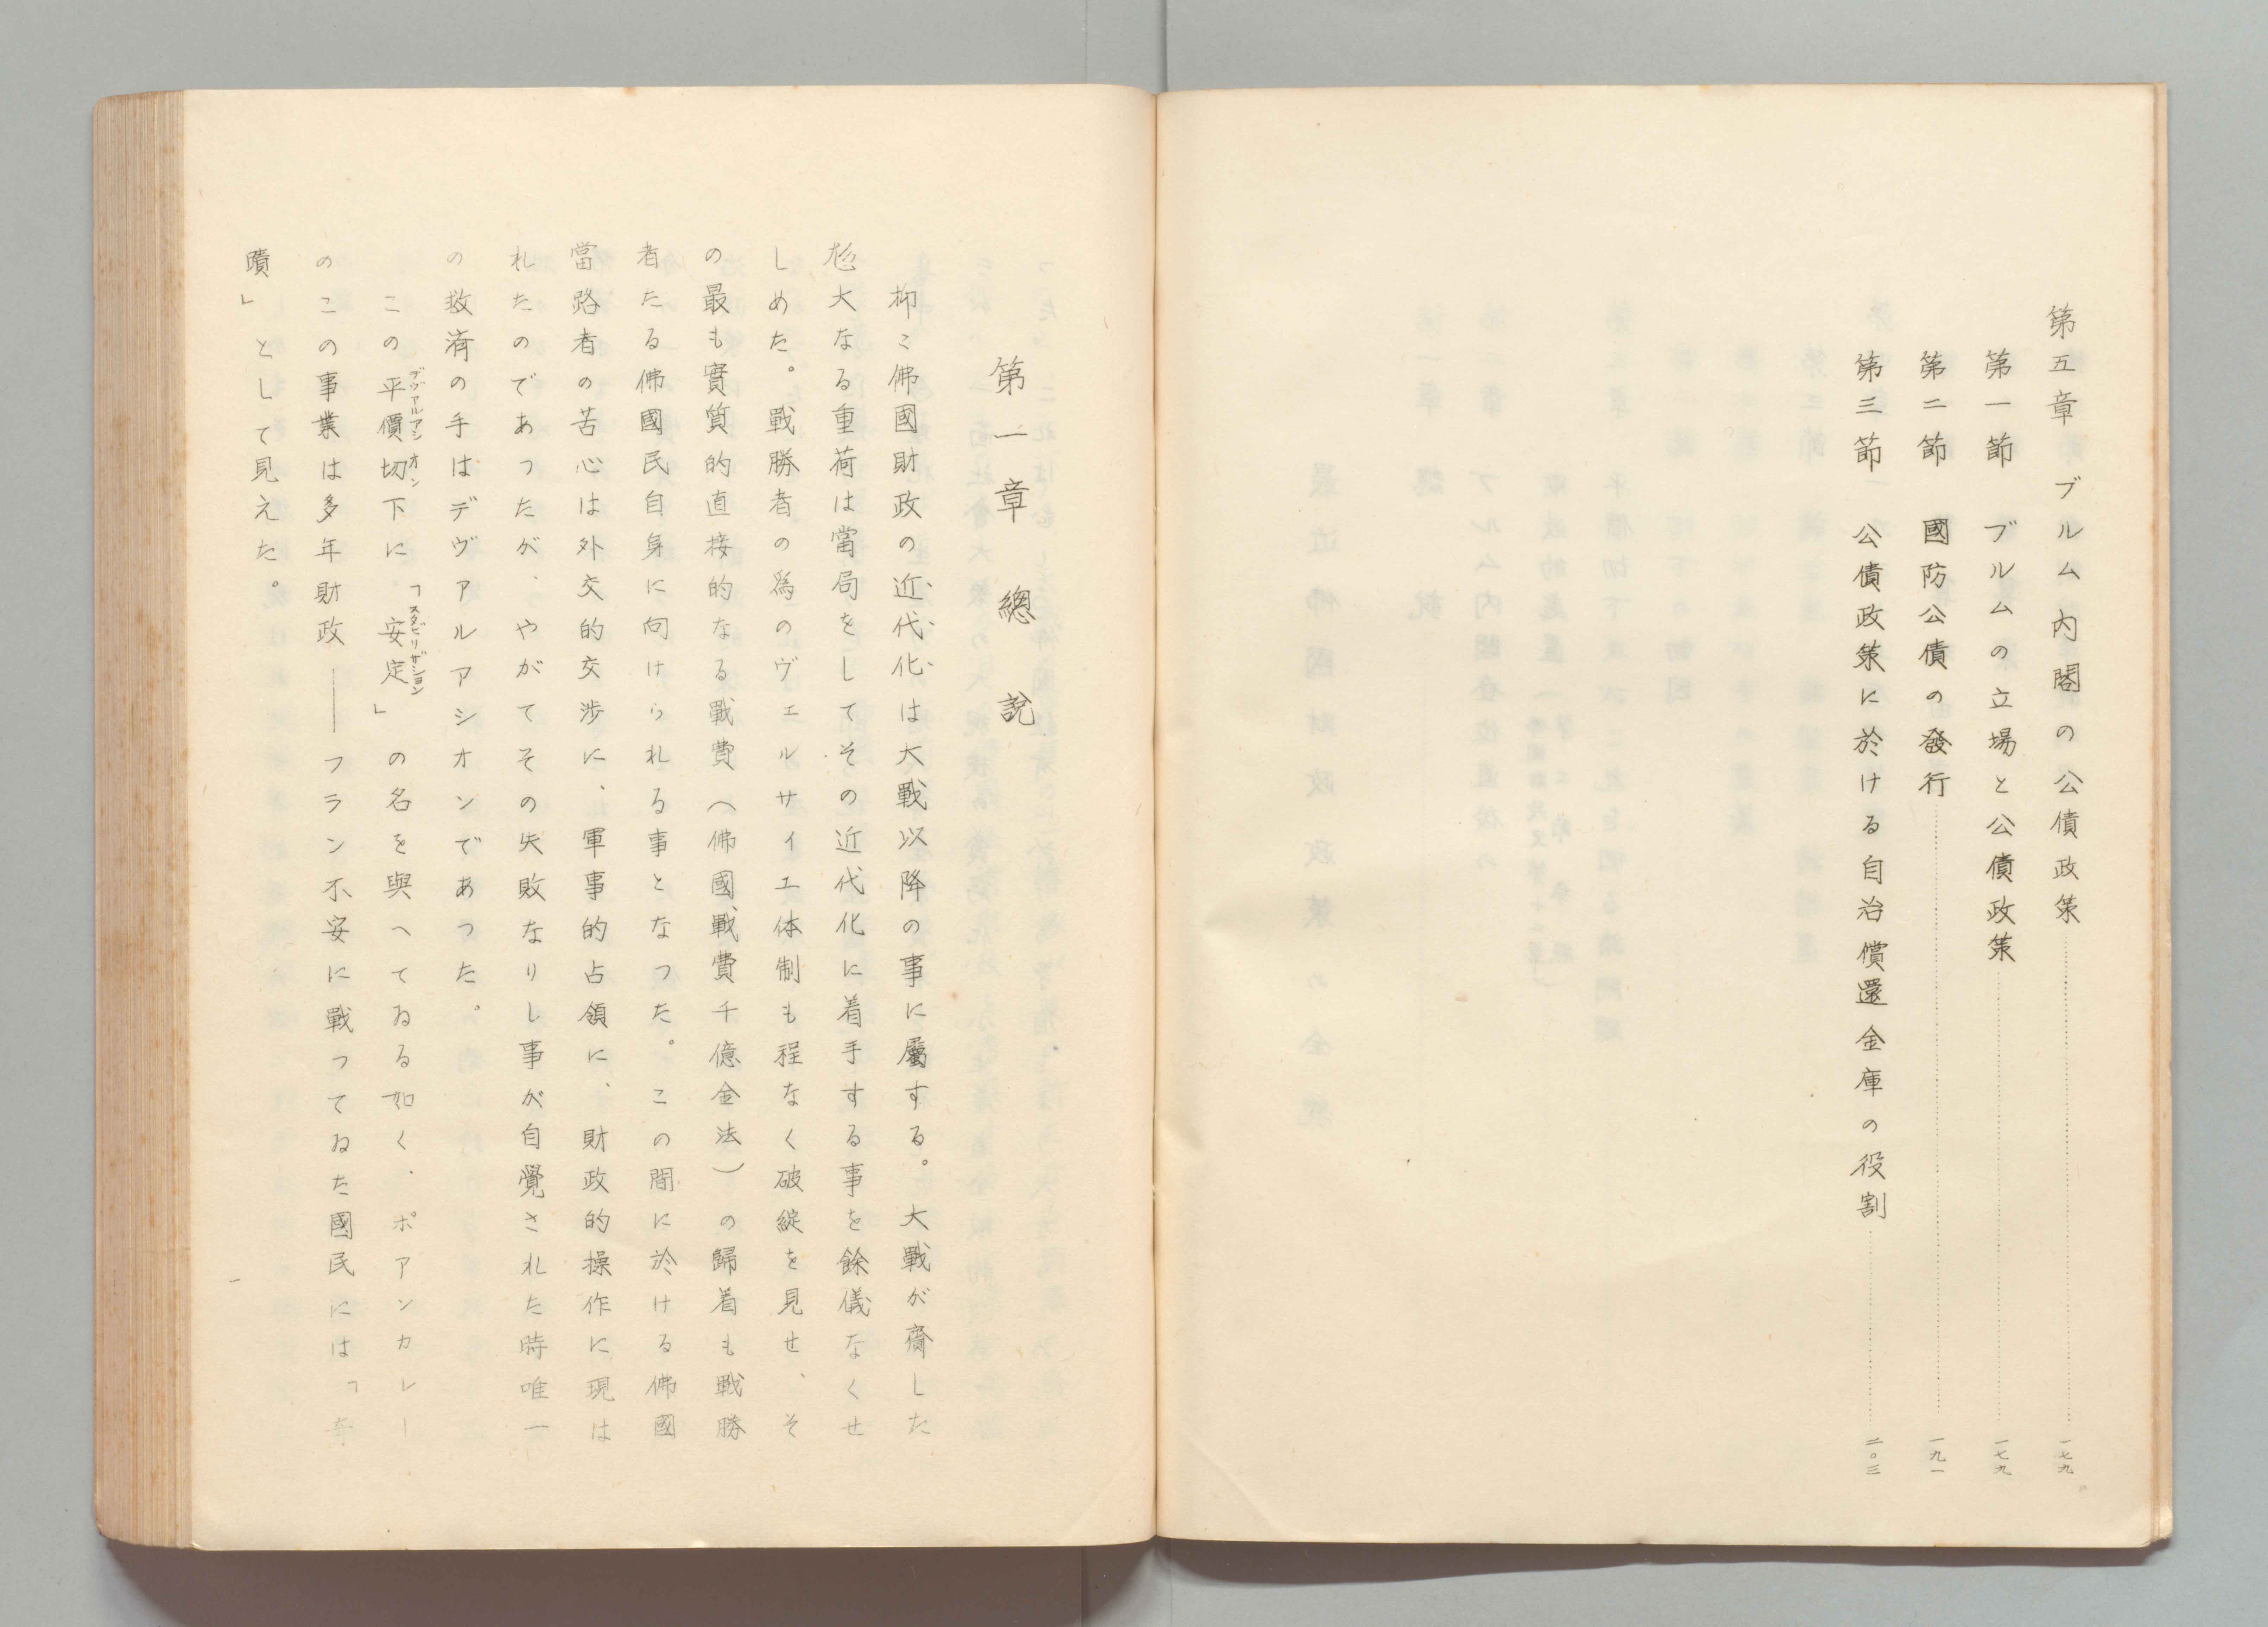 第五章 ブルム内閣の公債政策 一七九
第一節 ブルムの立場と公債政策 一七九
第二節 國防公債の發行 一九一
第三節 公債政策に於ける自治償還金庫の役割 二〇三
第一章 總説
抑〻佛國財政の近代化は大戰以降の事に屬する。大戰が齎した
尨大なる重荷は當局をしてその近代化に着手する事を餘儀なくせ
しめた。戰勝者の爲のヴェルサイエ体制も程なく破綻を見せ、そ
の最も實質的直接的なる戰費(佛國戰費千億金法)の歸着も戰勝
者たる佛國民自身に向けられる事となつた。この間に於ける佛國
當路者の苦心は外交的交渉に、軍事的占領に、財政的操作に現は
れたのであつたが、やがてその失敗なりし事が自覺された時唯一
の救済の手はデヴァルアシオンであつた。
この平價切下に「安定」の名を與へてゐる如く、ポアンカレー
デヴァルアシオン
スタビリザション
のこの事業は多年財政――フラン不安に戰つてゐた國民には「奇
蹟」として見えた。
一